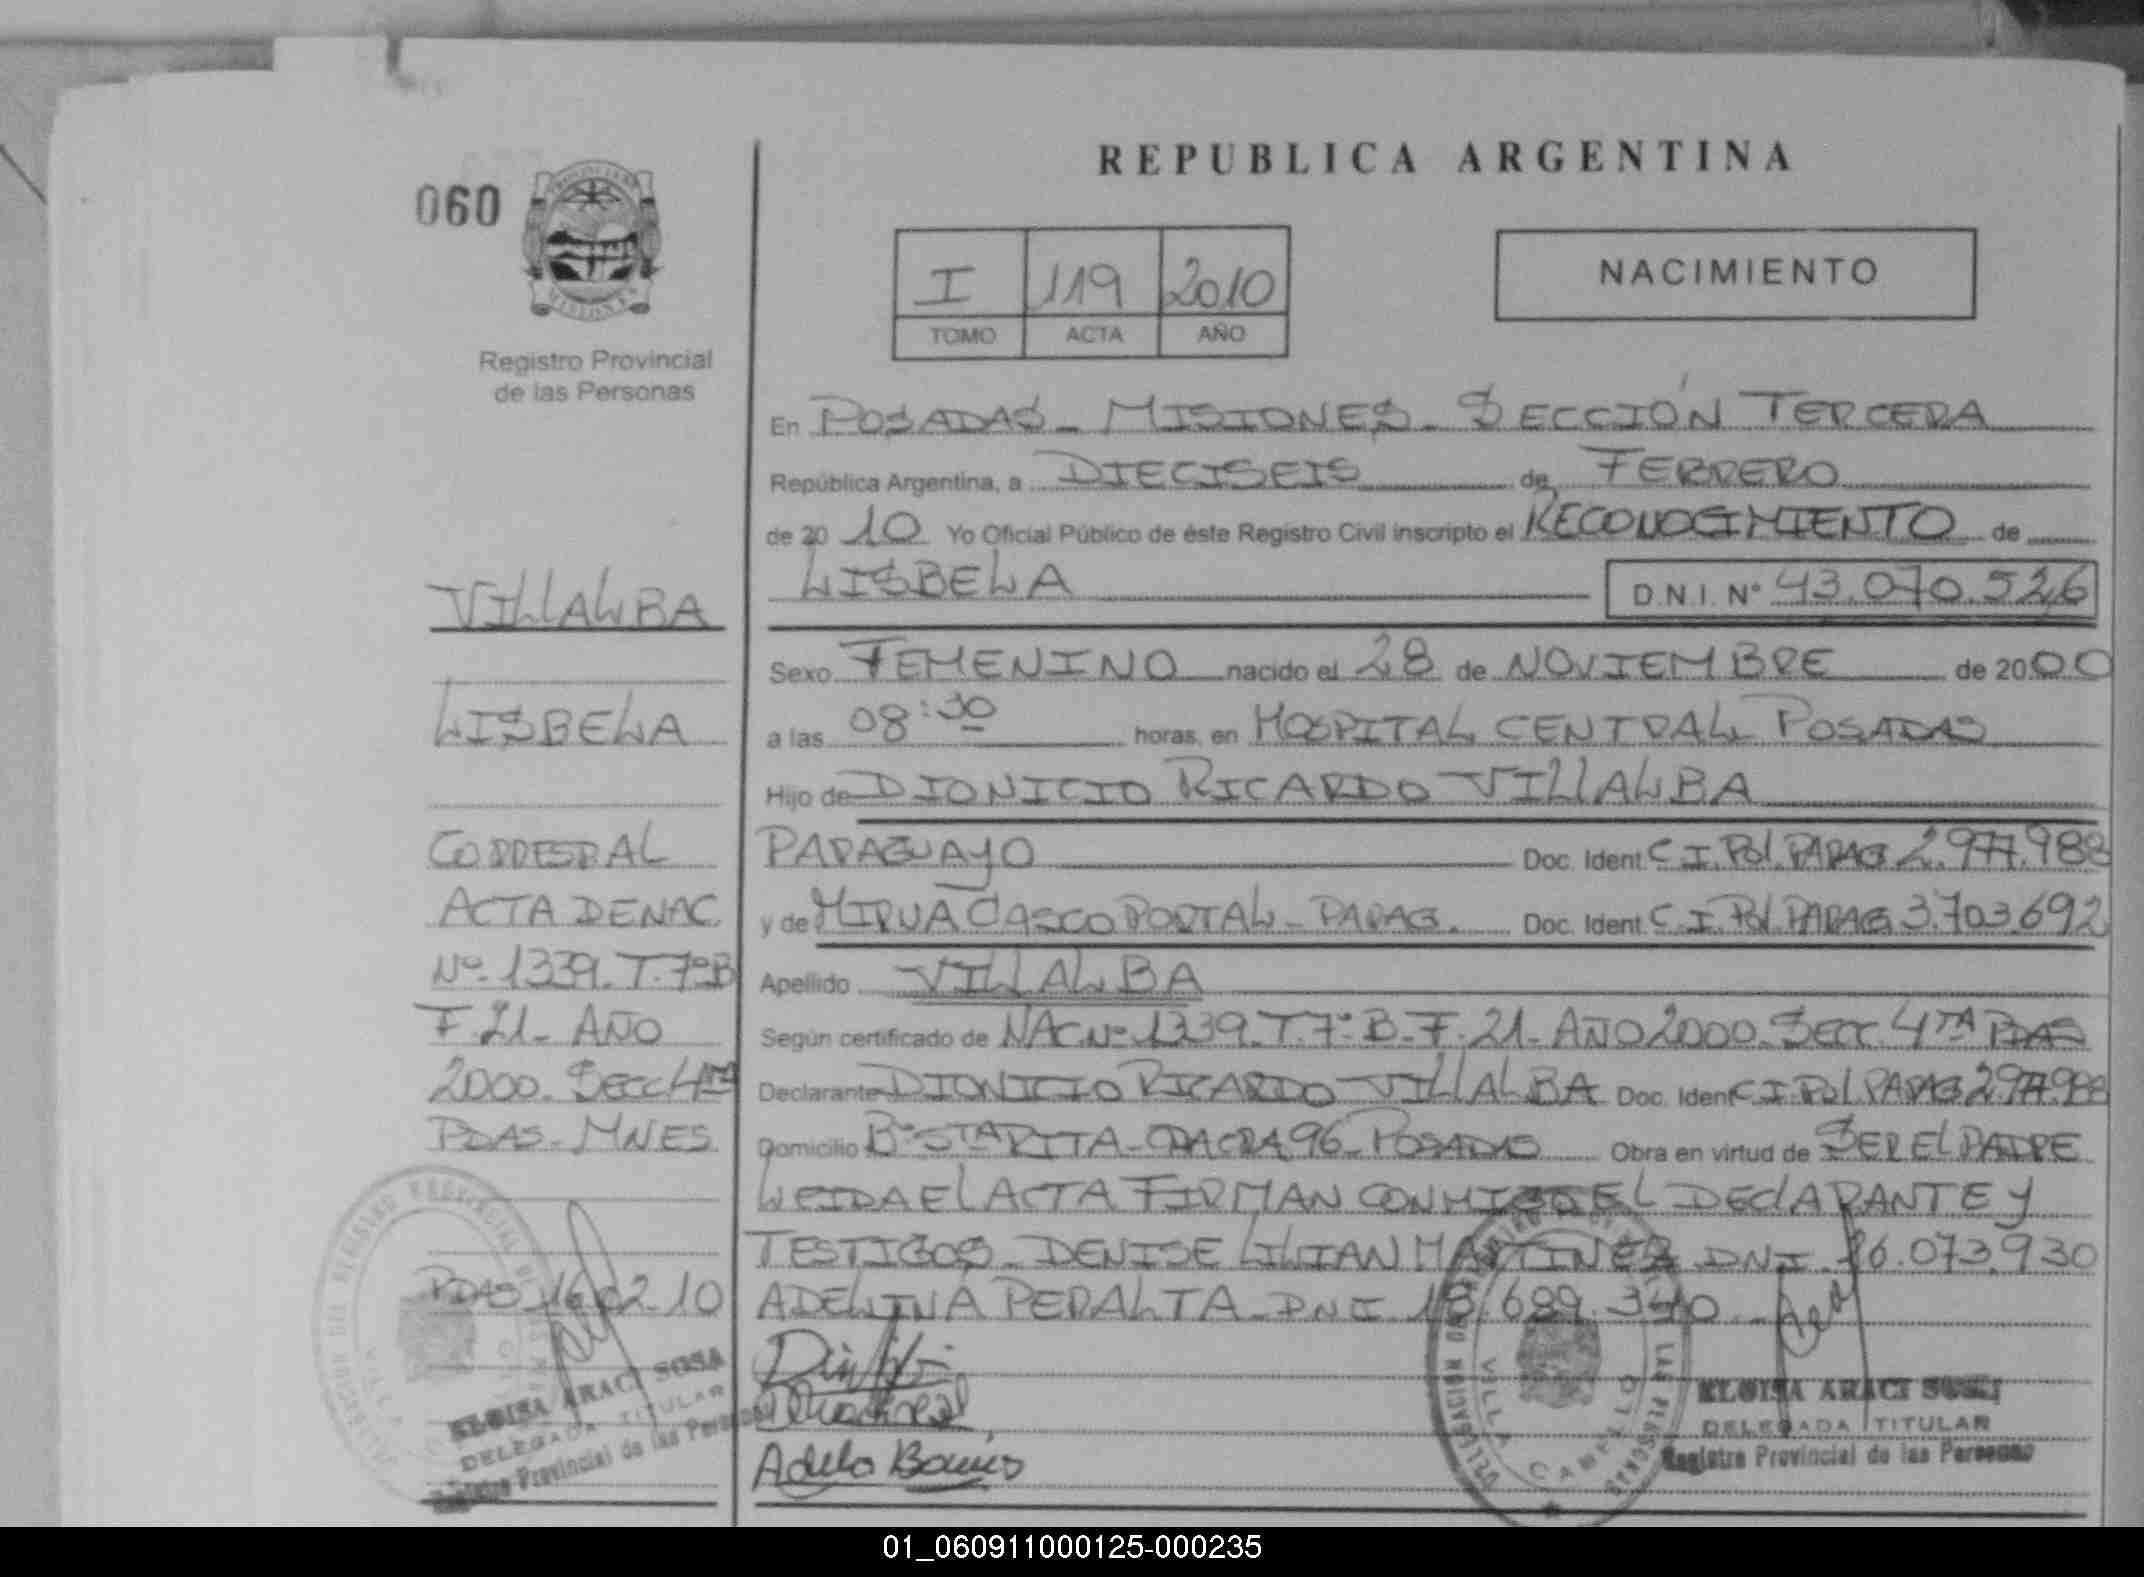 REPUBLICA ARGENTINA
060
MISIONES
Registro Provincial
de las Personas
I 119 2010
TOMO ACTA AÑO
NACIMIENTO
En POSADAS - MISIONES - SECCIÓN TERCERA
República Argentina, a DIECISEIS de FEBRERO
de 20 10 Yo Oficial Público de éste Registro Civil inscripto el RECONOCIMIENTO de
LISBELA D.N.I. Nº 43.070.526
Sexo FEMENINO nacido el 28 de NOVIEMBRE de 2000
a las 08:30 horas, en HOSPITAL CENTRAL POSADAS
Hijo de DIONICIO RICARDO VILLALBA
PARAGUAYO Doc. Ident. C.I. Pol. PARAG 2.977.988
y de MIRNA CASCO PORTAL - PARAG. Doc. Ident. C.I. Pol. PARAG 3.703.692
Apellido VILLALBA
Según certificado de NAC Nº 1339. T. 7º B - F. 21 - AÑO 2000 - SECC. 4TA PDAS
Declarante DIONICIO RICARDO VILLALBA Doc. Ident C.I. Pol PARAG 2.977.988
Domicilio Bº STA RITA - CHACRA 96 - POSADAS Obra en virtud de SER EL PADRE
LEIDA EL ACTA FIRMAN CONMIGO EL DECLARANTE Y
TESTIGOS - DENISE LILIAN MARTINEZ DNI 26.073.930
ADELINA PERALTA - DNI 18.689.340
VILLALBA
LISBELA
CORRESP. AL
ACTA DE NAC
Nº 1339. T. 7º B
F. 21 - AÑO
2000. SECC 4TA
PDAS - MNES
PDAS 16.02.10
ELOISA ARACI SOSA
DELEGADA TITULAR
Registro Provincial de las Personas
VILLA CABELLO
ELOISA ARACI SOSA
DELEGADA TITULAR
Registro Provincial de las Personas
01_060911000125-000235